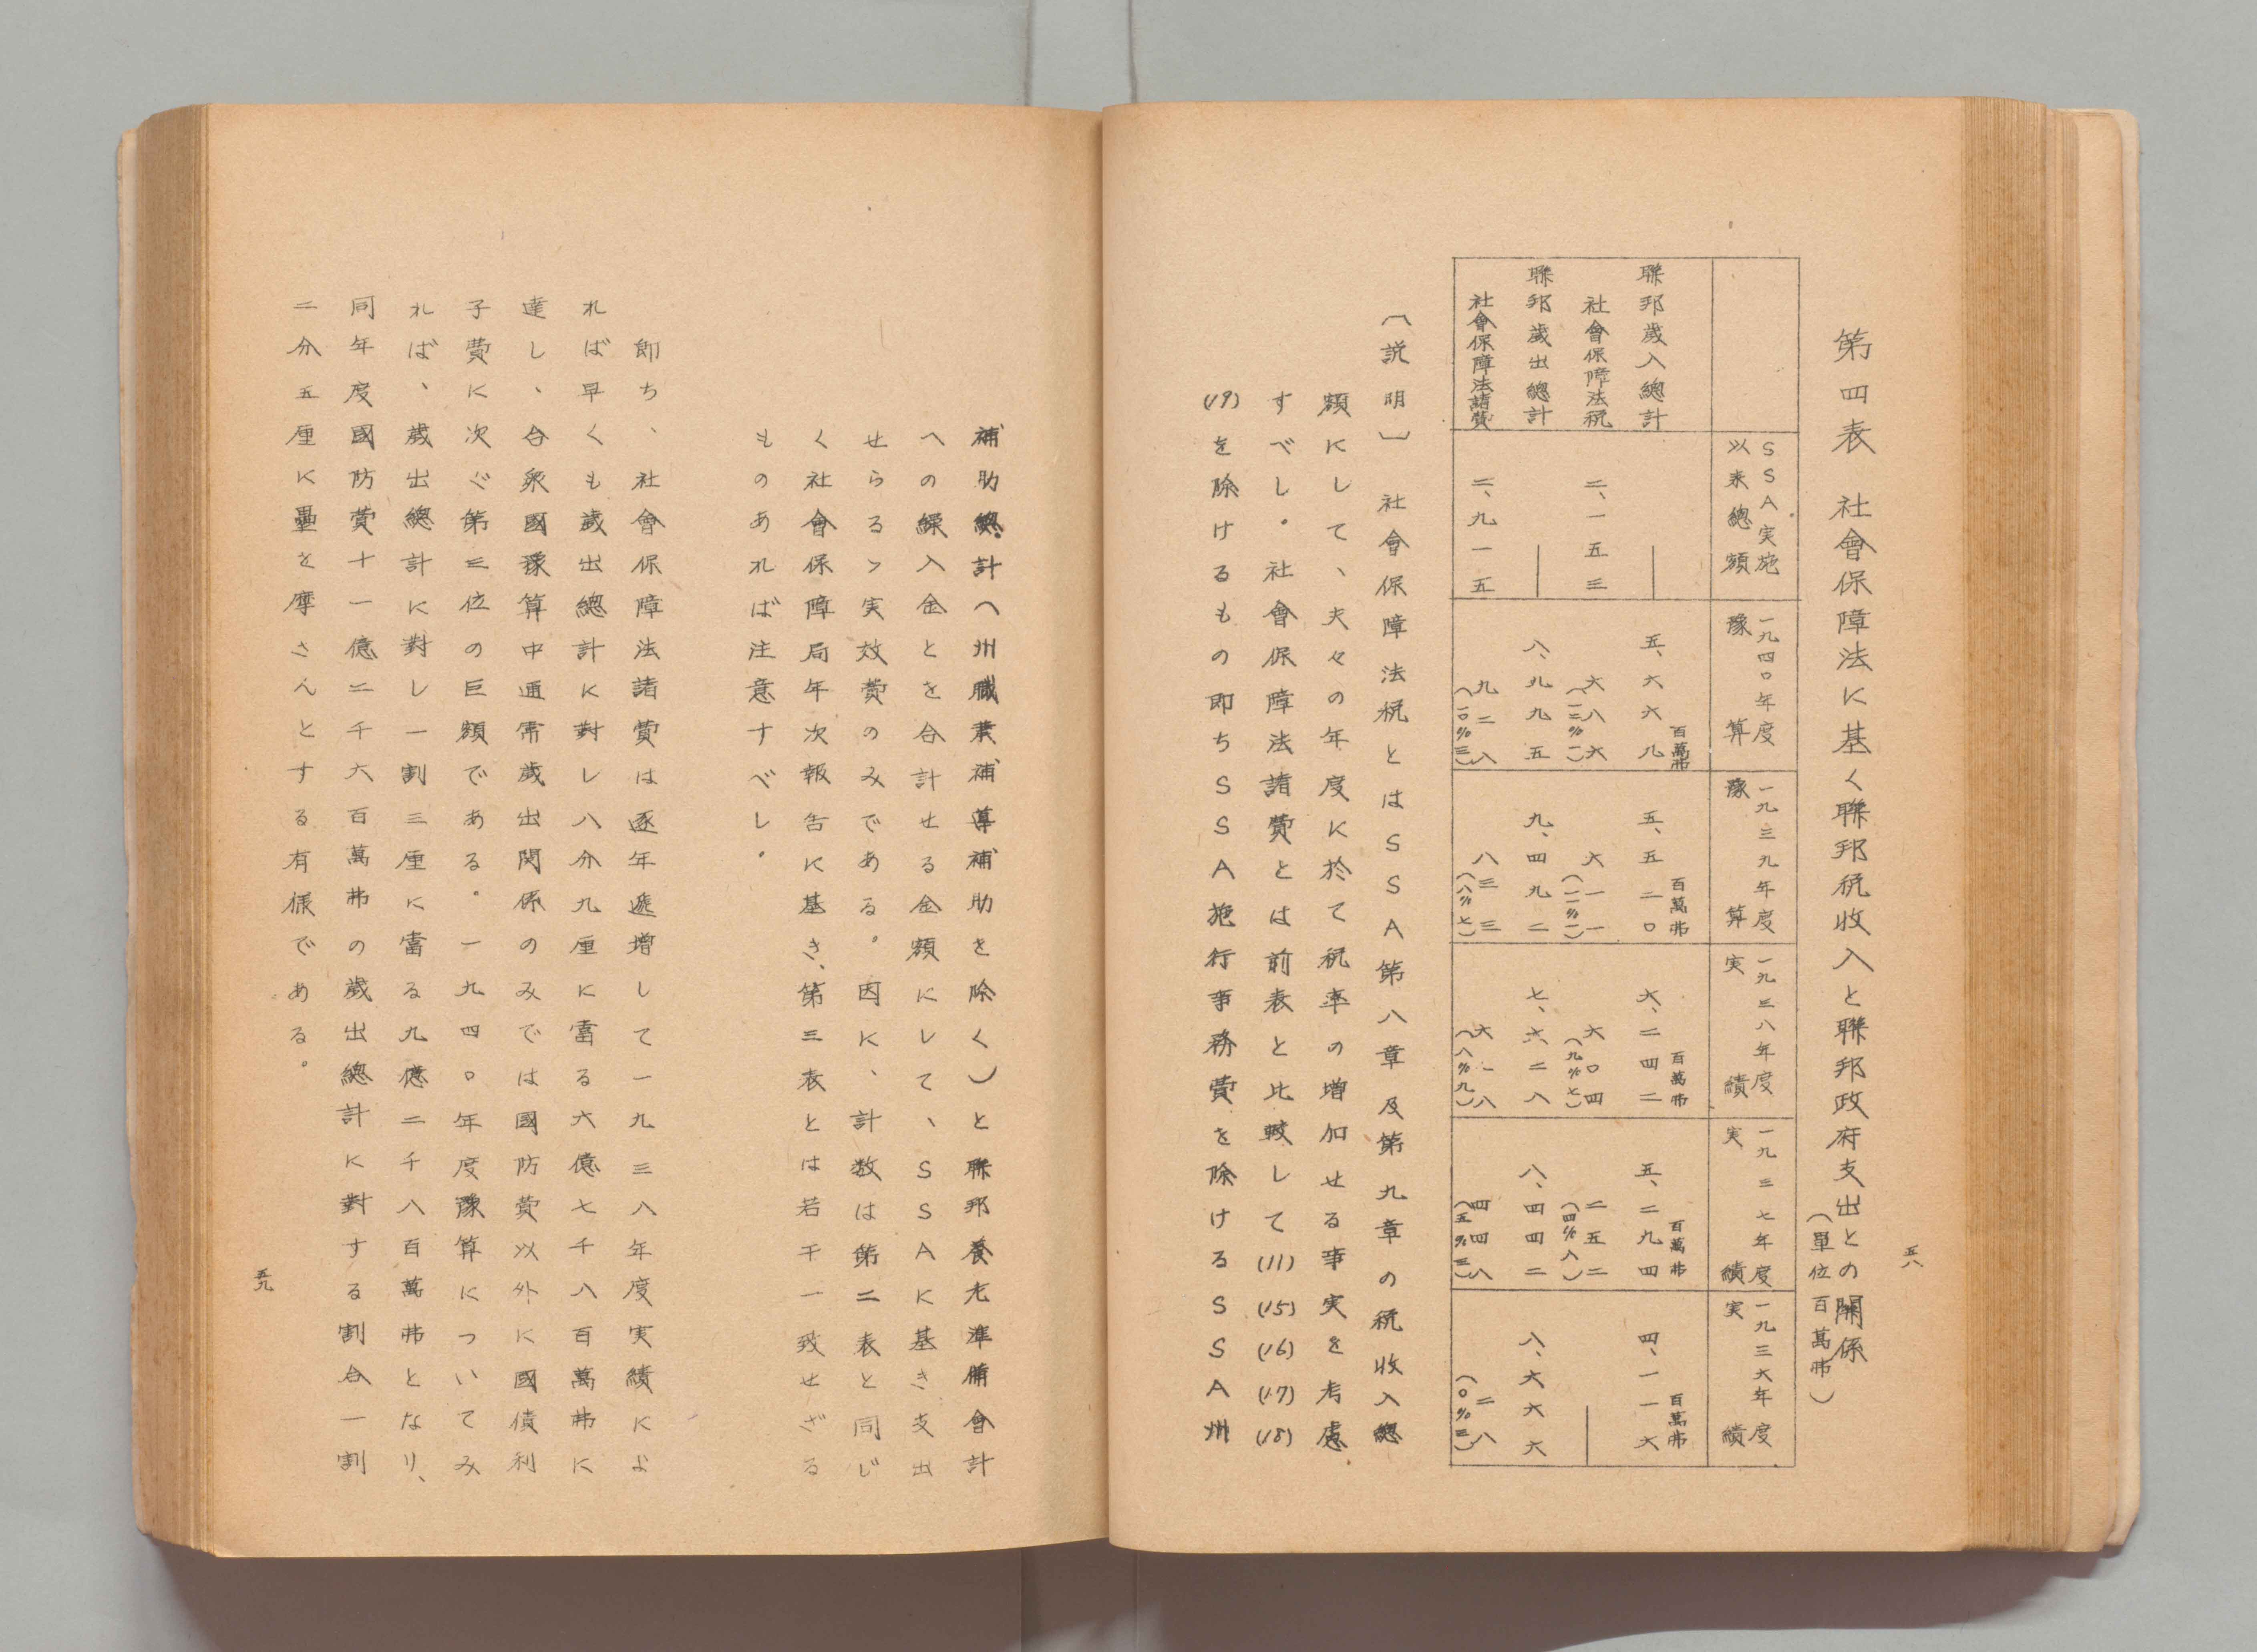 五八
第四表 社會保障法に基く聯邦税收入と聯邦政府支出との関係
(單位百萬弗)
SSA実施以来總額
一九四〇年度豫算
一九三九年度豫算
一九三八年度実績
一九三七年度実績
一九三六年度実績
聯邦歳入總計 ── 五、六六九百萬弗 五、五二〇百萬弗 六、二四二百萬弗 五、二九四百萬弗 四、一一六百萬弗
社會保障法税 二、一五三 六八六(一二%一) 六一一(一一%一) 六〇四(九%七) 二五二(四%八) ──
聯邦歳出總計 ── 八、九九五 九、四九二 七、六二八 八、四四二 八、六六六
社會保障法諸費 二、九一五 九二八(一〇%三) 八三三(八%七) 六一八(八%九) 四四八(五%三) 二八(〇%三)
〔説明〕 社會保障法税とはSSA第八章及第九章の税收入總
額にして、夫々の年度に於て税率の増加せる事実を考慮
すべし。社會保障法諸費とは前表と比較して(11)(15)(16)(17)(18)
(19)を除けるもの即ちSSA施行事務費を除けるSSA州
補助總計(州職業補導補助を除く)と聯邦養老準備會計
への繰入金とを合計せる金額にして、SSAに基き支出
せらるゝ実效費のみである。因に、計数は第二表と同じ
く社會保障局年次報告に基き、第三表とは若干一致せざる
ものあれば注意すべし。
即ち、社會保障法諸費は逐年遞増して一九三八年度実績によ
れば早くも歳出總計に對し八分九厘に當る六億七千八百萬弗に
達し、合衆國豫算中通常歳出関係のみでは國防費以外に國債利
子費に次ぐ第三位の巨額である。一九四〇年度豫算についてみ
れば、歳出總計に對し一割三厘に當る九億二千八百萬弗となり、
同年度國防費十一億二千六百萬弗の歳出總計に對する割合一割
二分五厘に壘を摩さんとする有様である。
五九